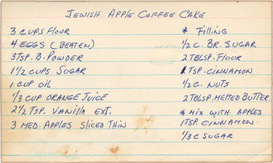 JEWISH APPLE COFFEE CAKE
3 CUPS FLOUR
4 EGGS (BEATEN)
3 TSP. B. POWDER
1 1/2 CUPS SUGAR
1 CUP OIL
1/3 CUP ORANGE JUICE
2 1/2 TSP. VANILLA EXT.
3 MED. APPLES SLICED THIN
* FILLING
1/2 C. BR. SUGAR
2 TBLSP. FLOUR
1 TSP. CINNAMON
1/2 C. NUTS
2 TBLSP. MELTED BUTTER
* MIX WITH APPLES
1 TSP CINNAMON
1/3 C SUGAR